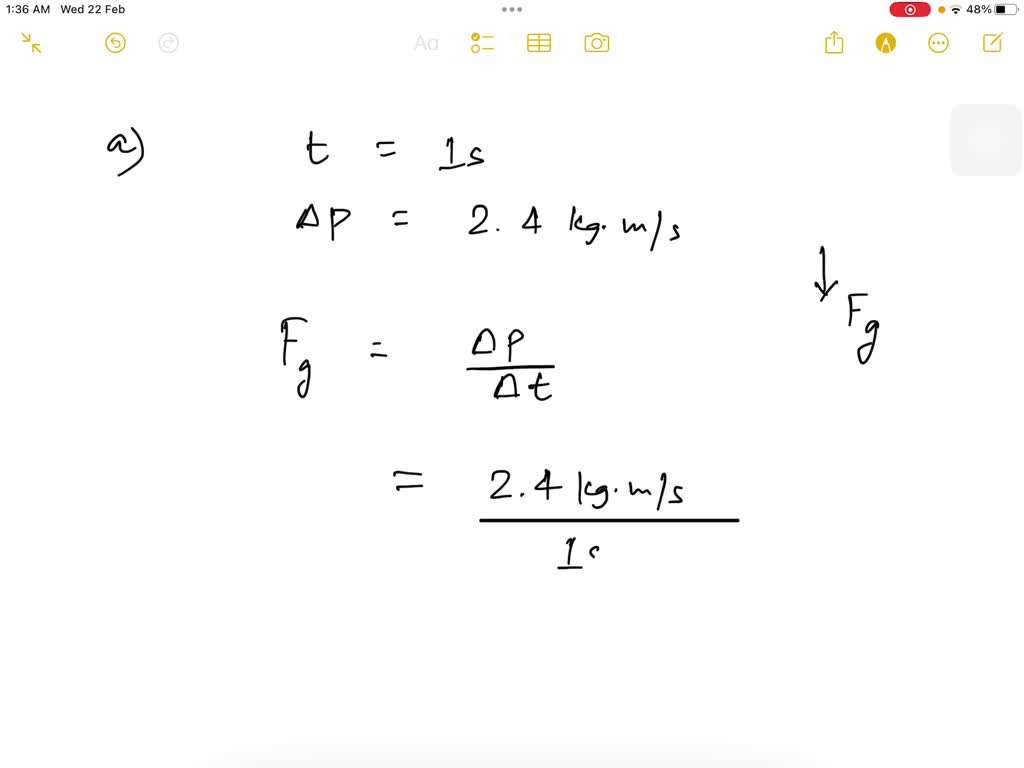 1:36 AM Wed 22 Feb 48%
Aa
a) t = 1s
Δp = 2.4 kg.m/s
Fg
Fg = Δp
Δt
= 2.4 kg.m/s
1s